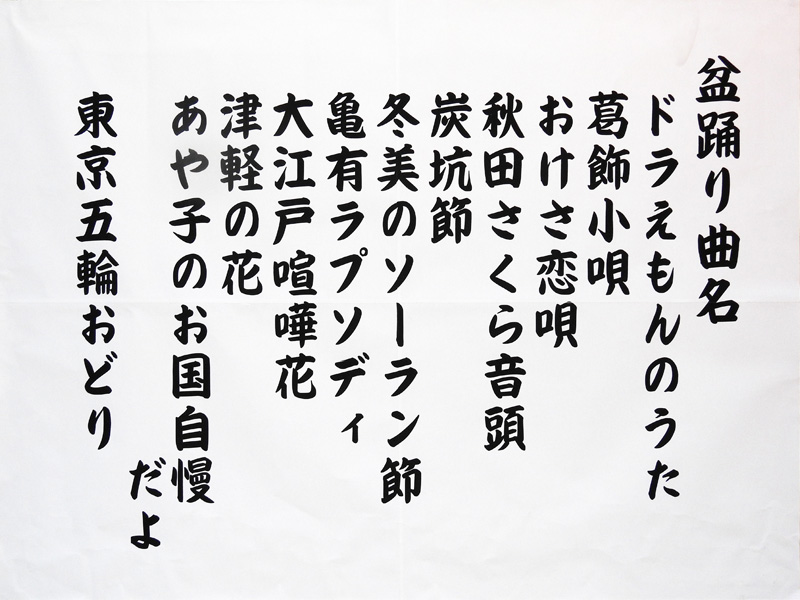 盆踊り曲名
ドラえもんのうた
葛飾小唄
おけさ恋唄
秋田さくら音頭
炭坑節
冬美のソーラン節
亀有ラプソディ
大江戸喧嘩花
津軽の花
あや子のお国自慢
だよ
東京五輪おどり